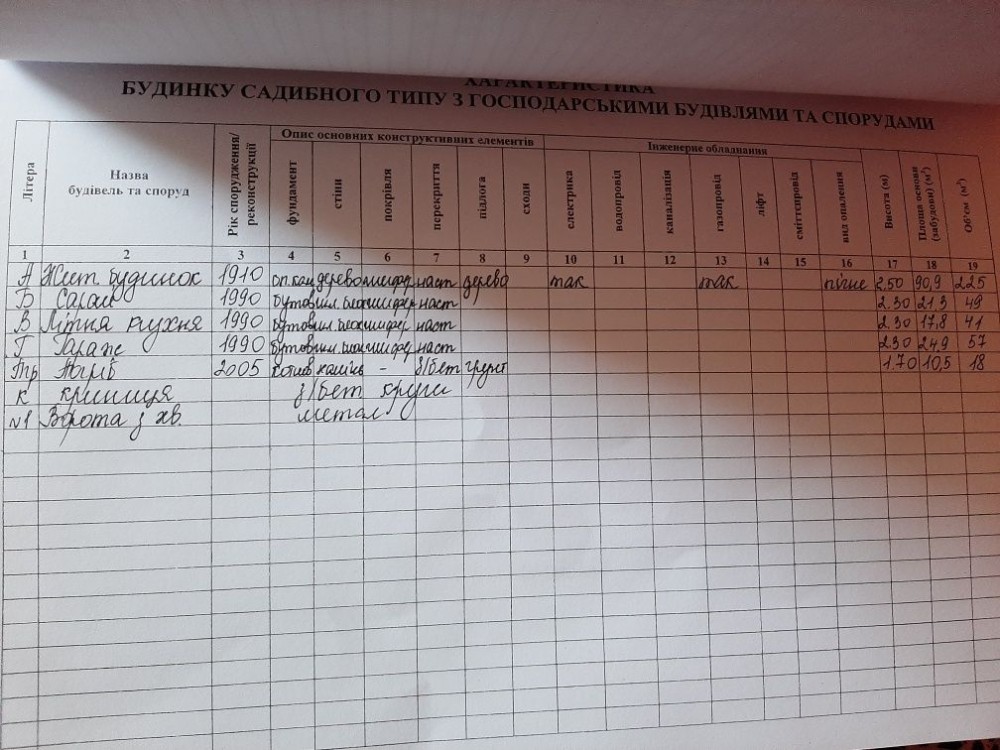 ХАРАКТЕРИСТИКА
БУДИНКУ САДИБНОГО ТИПУ З ГОСПОДАРСЬКИМИ БУДІВЛЯМИ ТА СПОРУДАМИ
Літера Назва будівель та споруд Рік спорудження/реконструкції Опис основних конструктивних елементів Інженерне обладнання Висота (м) Площа основи (забудови) (м²) Об'єм (м³)
фундамент стіни покрівля перекриття підлога сходи електрика водопровід каналізація газопровід ліфт сміттєпровід вид опалення
1 2 3 4 5 6 7 8 9 10 11 12 13 14 15 16 17 18 19
А Жит будинок 1910 дерево шифер наст дерево так так пічне 2.50 90,9 225
Б Сарай 1990 бутовий шифер наст 2.30 21,3 49
В Літня кухня 1990 бутовий шифер наст 2.30 17,8 41
Г Гараж 1990 бутовий шифер наст 2.30 24,9 57
Пр Погріб 2005 котлов камінь - з/бет грунт 1.70 10,5 18
К криниця з/бет круги
№1 Ворота з хв. метал